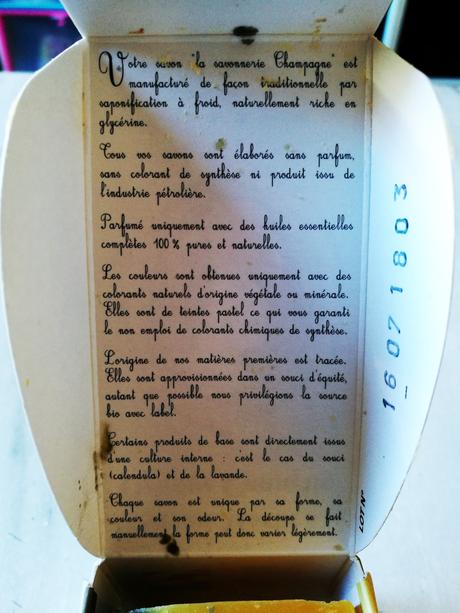 Votre savon "la savonnerie Champagne" est
manufacturé de façon traditionnelle par
saponification à froid, naturellement riche en
glycérine.
Tous vos savons sont élaborés sans parfum,
sans colorant de synthèse ni produit issu de
l'industrie pétrolière.
Parfumé uniquement avec des huiles essentielles
complètes 100 % pures et naturelles.
Les couleurs sont obtenues uniquement avec des
colorants naturels d'origine végétale ou minérale.
Elles sont de teintes pastel ce qui vous garanti
le non emploi de colorants chimiques de synthèse.
L'origine de nos matières premières est tracée.
Elles sont approvisionnées dans un souci d'équité,
autant que possible nous privilégions la source
bio avec label.
Certains produits de base sont directement issus
d'une culture interne : c'est le cas du souci
(calendula) et de la lavande.
Chaque savon est unique par sa forme, sa
couleur et son odeur. La découpe se fait
manuellement la forme peut donc varier légèrement.
LOT N°
16071803